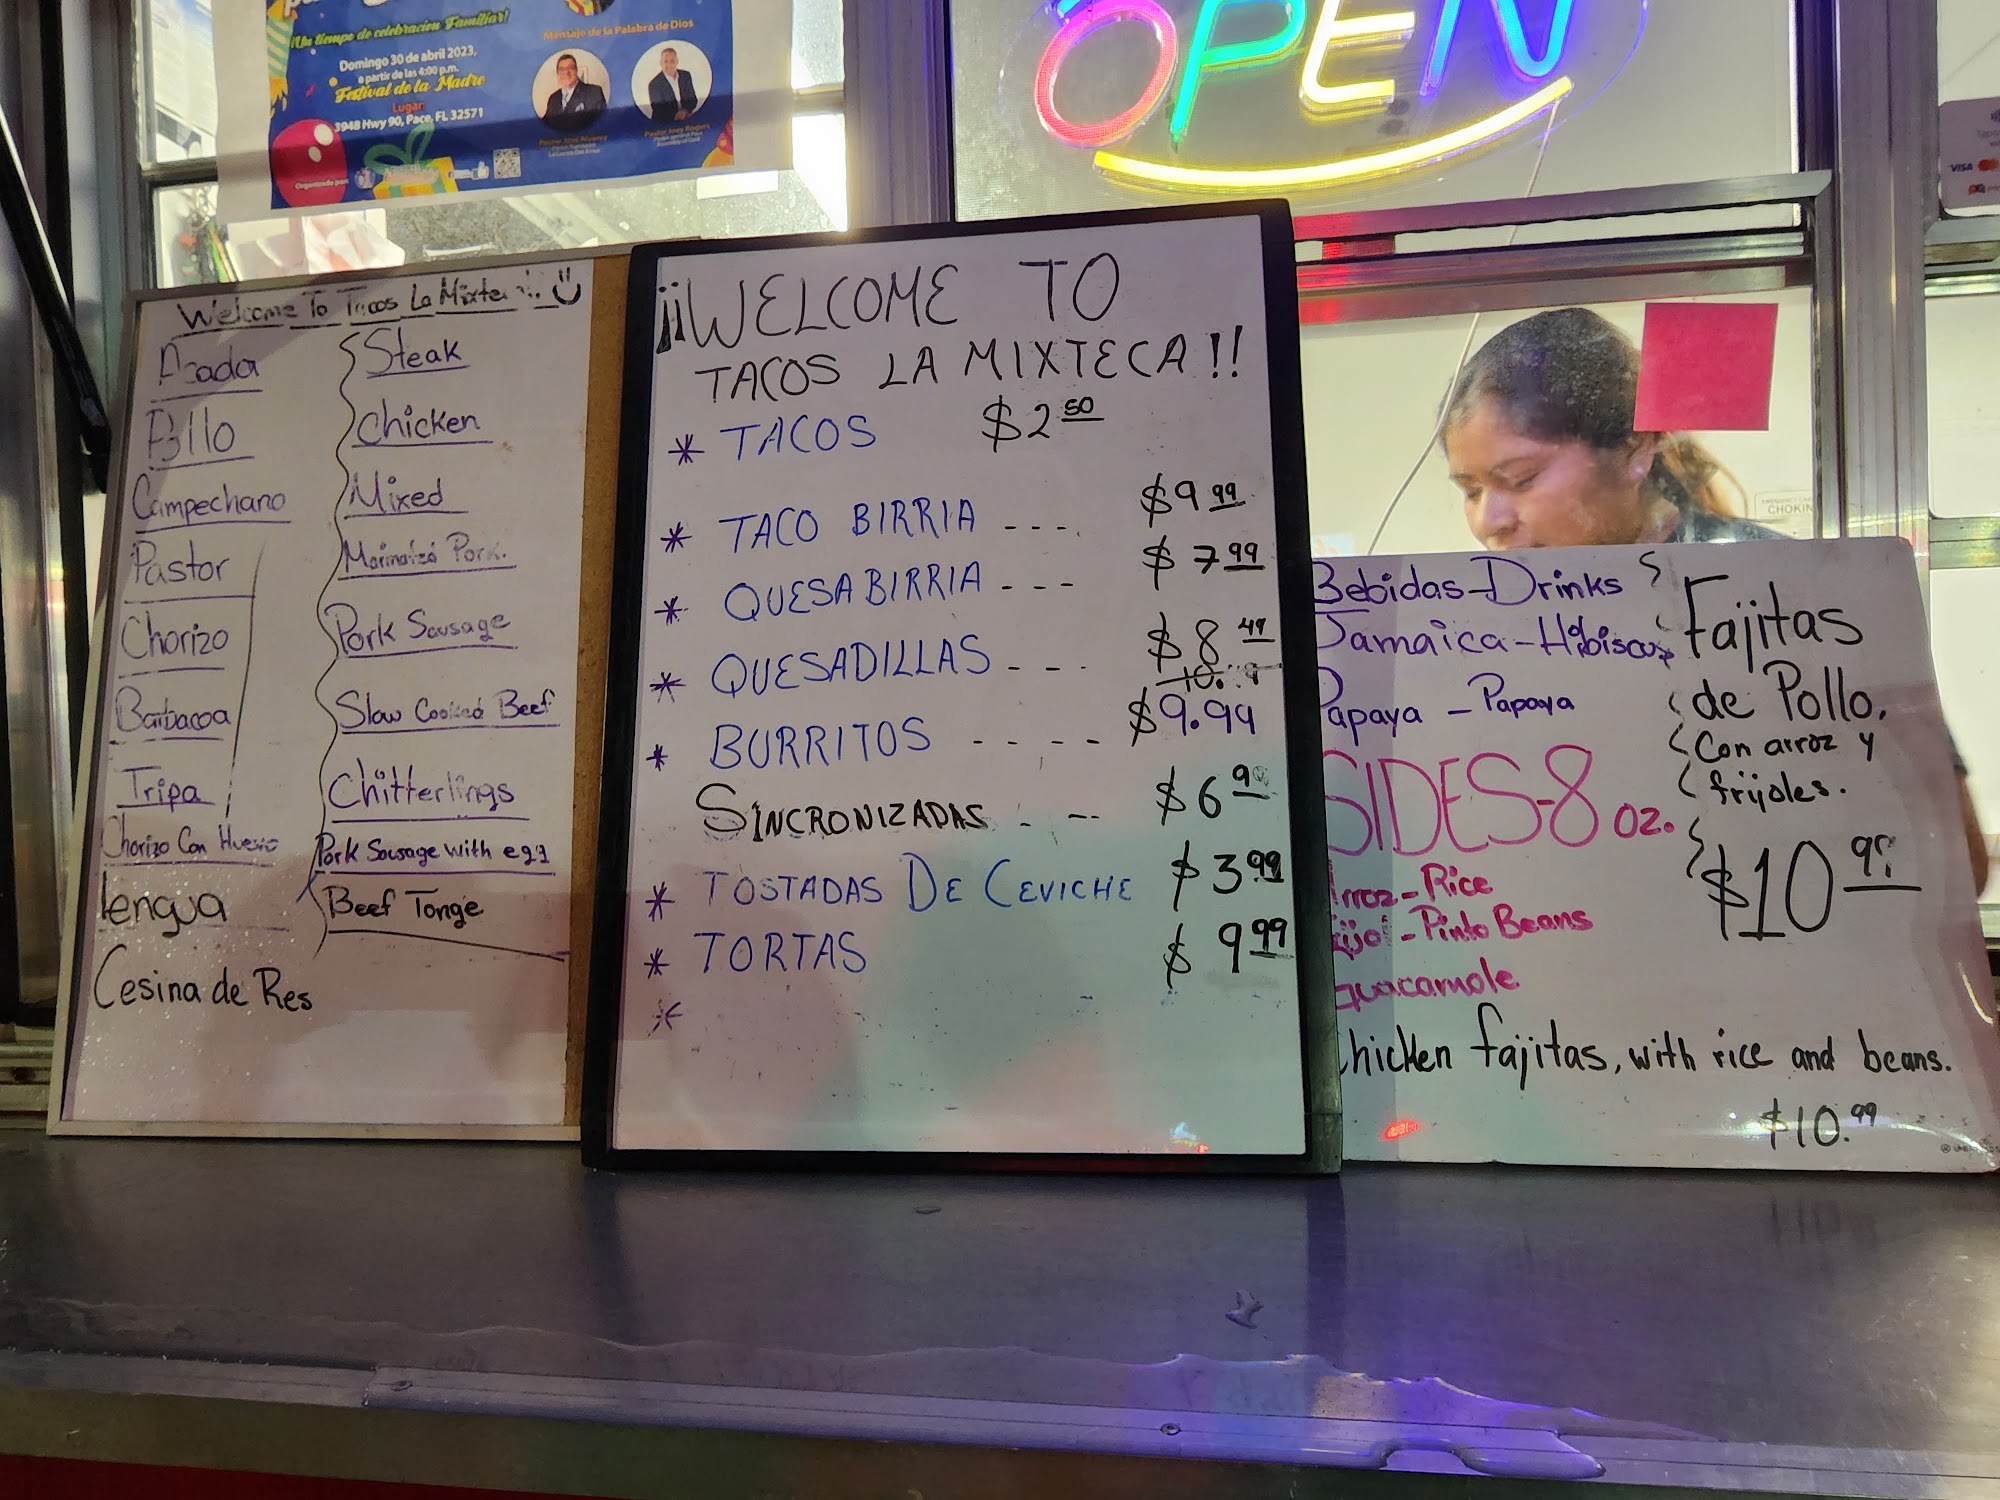 ¡Un tiempo de celebración Familiar!
Domingo 30 de abril 2023,
a partir de las 4:00 p.m.
Festival de la Madre
Lugar:
3948 Hwy 90, Pace, FL 32571
Organizado por:
Mensaje de la Palabra de Dios
OPEN
VISA
CHOKIN
Welcome To Tacos La Mixte
Asada Steak
Pollo Chicken
Campechano Mixed
Pastor Marinated Pork.
Chorizo Pork Sausage
Barbacoa Slow Cooked Beef
Tripa Chitterlings
Chorizo Con Huevo Pork Sausage with egg
lengua Beef Tonge
Cesina de Res
¡¡WELCOME TO
TACOS LA MIXTECA!!
* TACOS $2 50
* TACO BIRRIA --- $9 99
* QUESABIRRIA --- $7 99
* QUESADILLAS --- $8 49
* BURRITOS ---- $9.99
SINCRONIZADAS - -- $6 9
* TOSTADAS DE CEVICHE $3.99
* TORTAS $9 99
*
Bebidas-Drinks
Jamaica-Hibiscus
Papaya - Papaya
SIDES-8 oz.
Arroz-Rice
- Pinto Beans
guacamole
Fajitas
de Pollo,
Con arroz y
frijoles.
$10 99
Chicken fajitas, with rice and beans.
$10.99